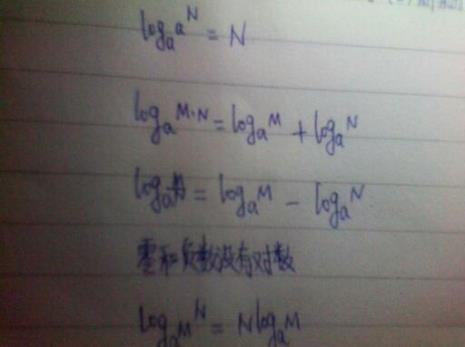 logₐa^N = N
logₐM·N = logₐM + logₐN
logₐ = logₐM - logₐN
零和负数没有对数
logₐM^N = NlogₐM